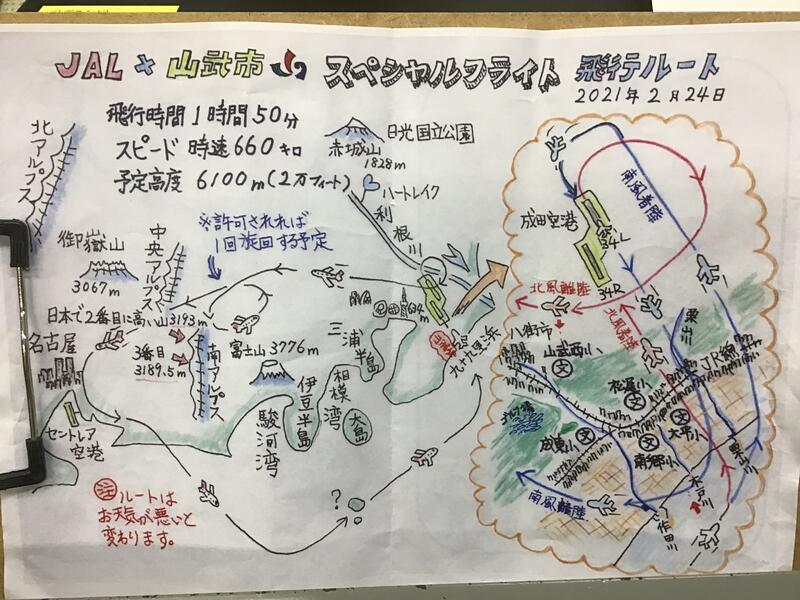 JAL × 山武市 スペシャルフライト 飛行ルート
2021年2月24日
飛行時間1時間50分
スピード 時速660キロ
予定高度 6100m(2万フィート)
北アルプス
日光国立公園
赤城山
1828m
ハートレイク
利根川
御嶽山
3067m
中央アルプス
※許可されれば
1回旋回する予定
日本で2番目に高い山3193m
3番目
3189.5m
南アルプス
名古屋
セントレア
空港
富士山 3776m
634m
三浦半島
相模湾
伊豆半島
駿河湾
大島
九十九里浜
?
注 ルートは
お天気が悪いと
変わります。
成田空港
34L
34R
南風着陸
北風離陸
北風着陸
八街市
山武西小
文
松尾小
文
成東小
文
南郷小
文
大平小
文
JR線
栗山川
木戸川
作田川
南風離陸